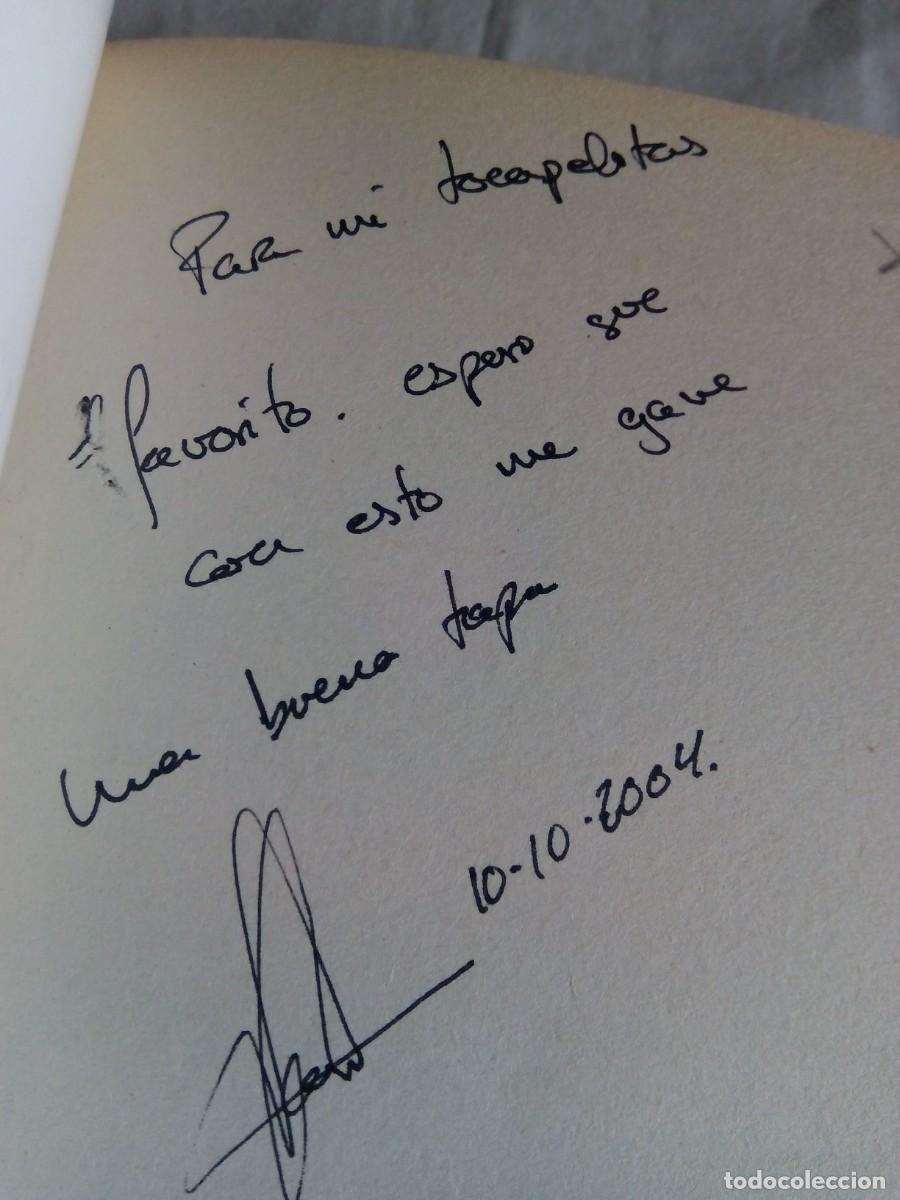 Para mi tocapelotas
favorito. espero que
con esto me gane
una buena tapa
10-10-2004.
todocoleccion